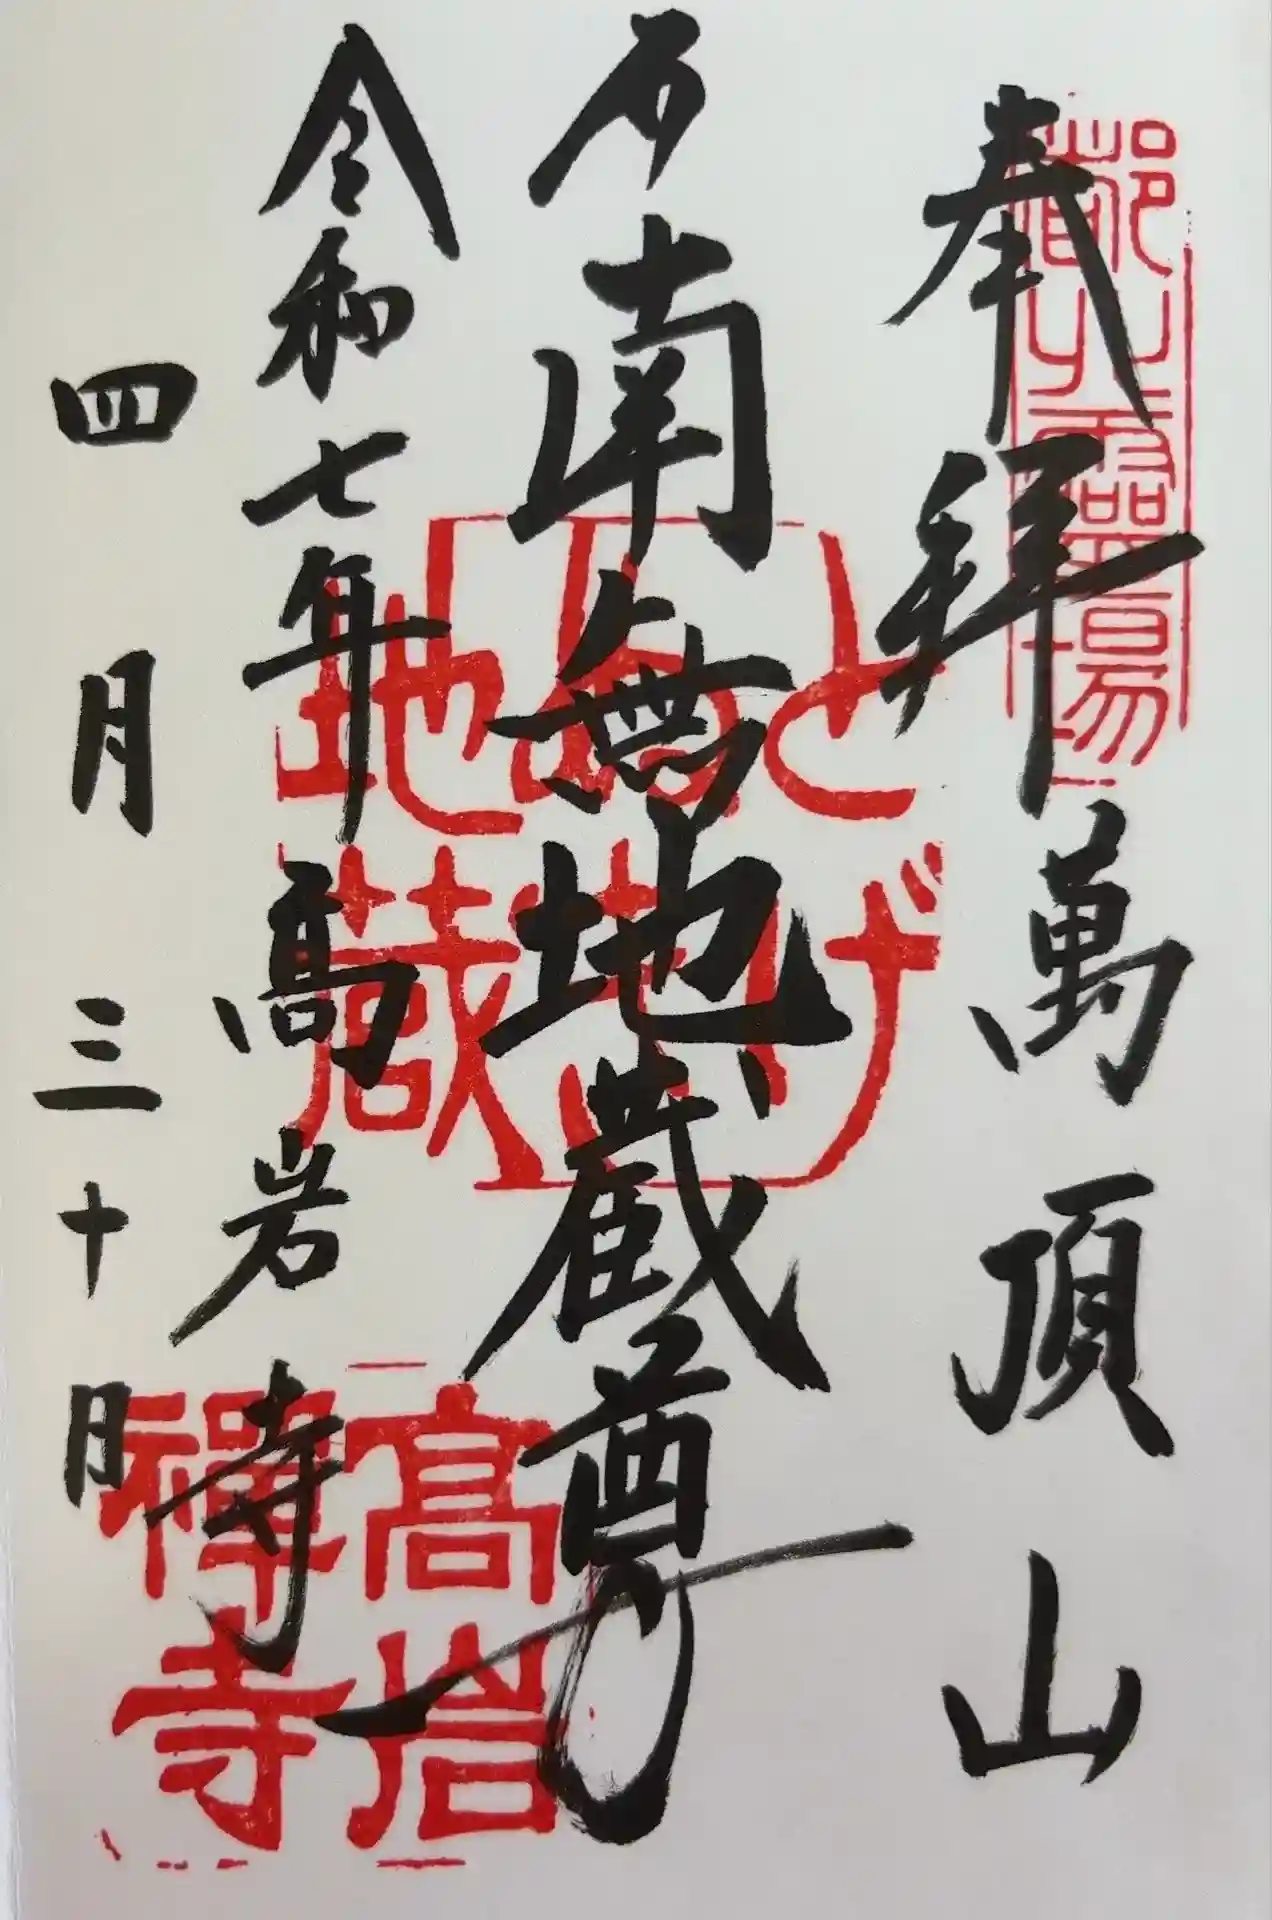 奉拝 萬頂山
南無地蔵尊
令和七年 高岩寺
四月三十日
とげぬき地蔵
高岩禅寺